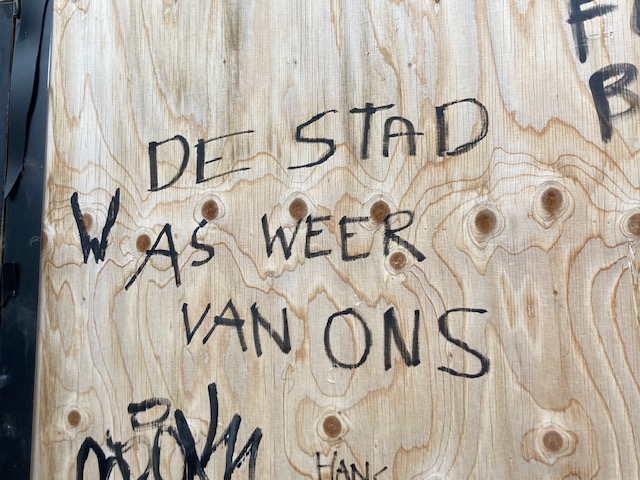 DE STAD
WAS WEER
VAN ONS
HANS